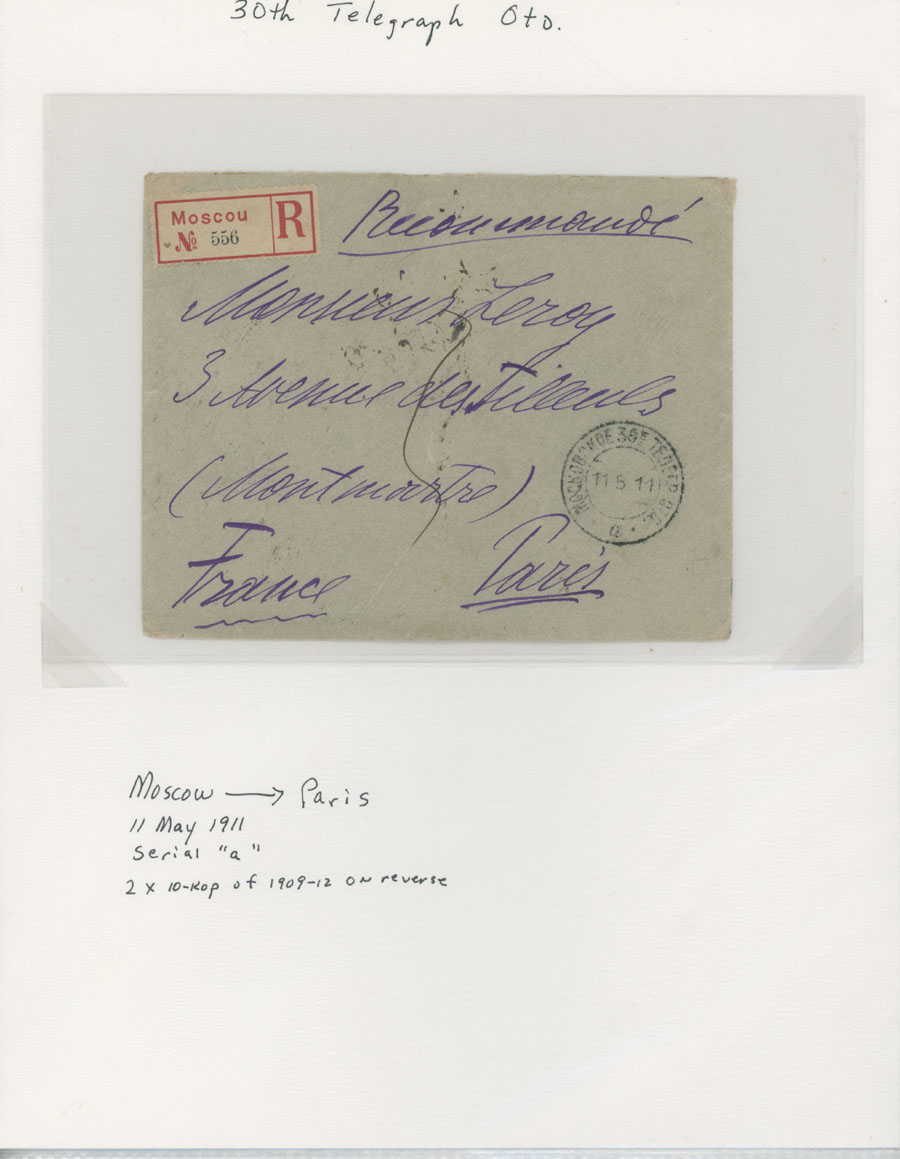 30th Telegraph Otd.
Moscou
№ 556
R
Recommandé
Monsieur Leroy
3 Avenue des Tilleuls
(Montmartre)
France Paris
МОСКОВСКОЕ 30Е ТЕЛЕГР. ОТД.
11 5 11
а
Moscow → Paris
11 May 1911
Serial "a"
2 x 10-kop of 1909-12 on reverse